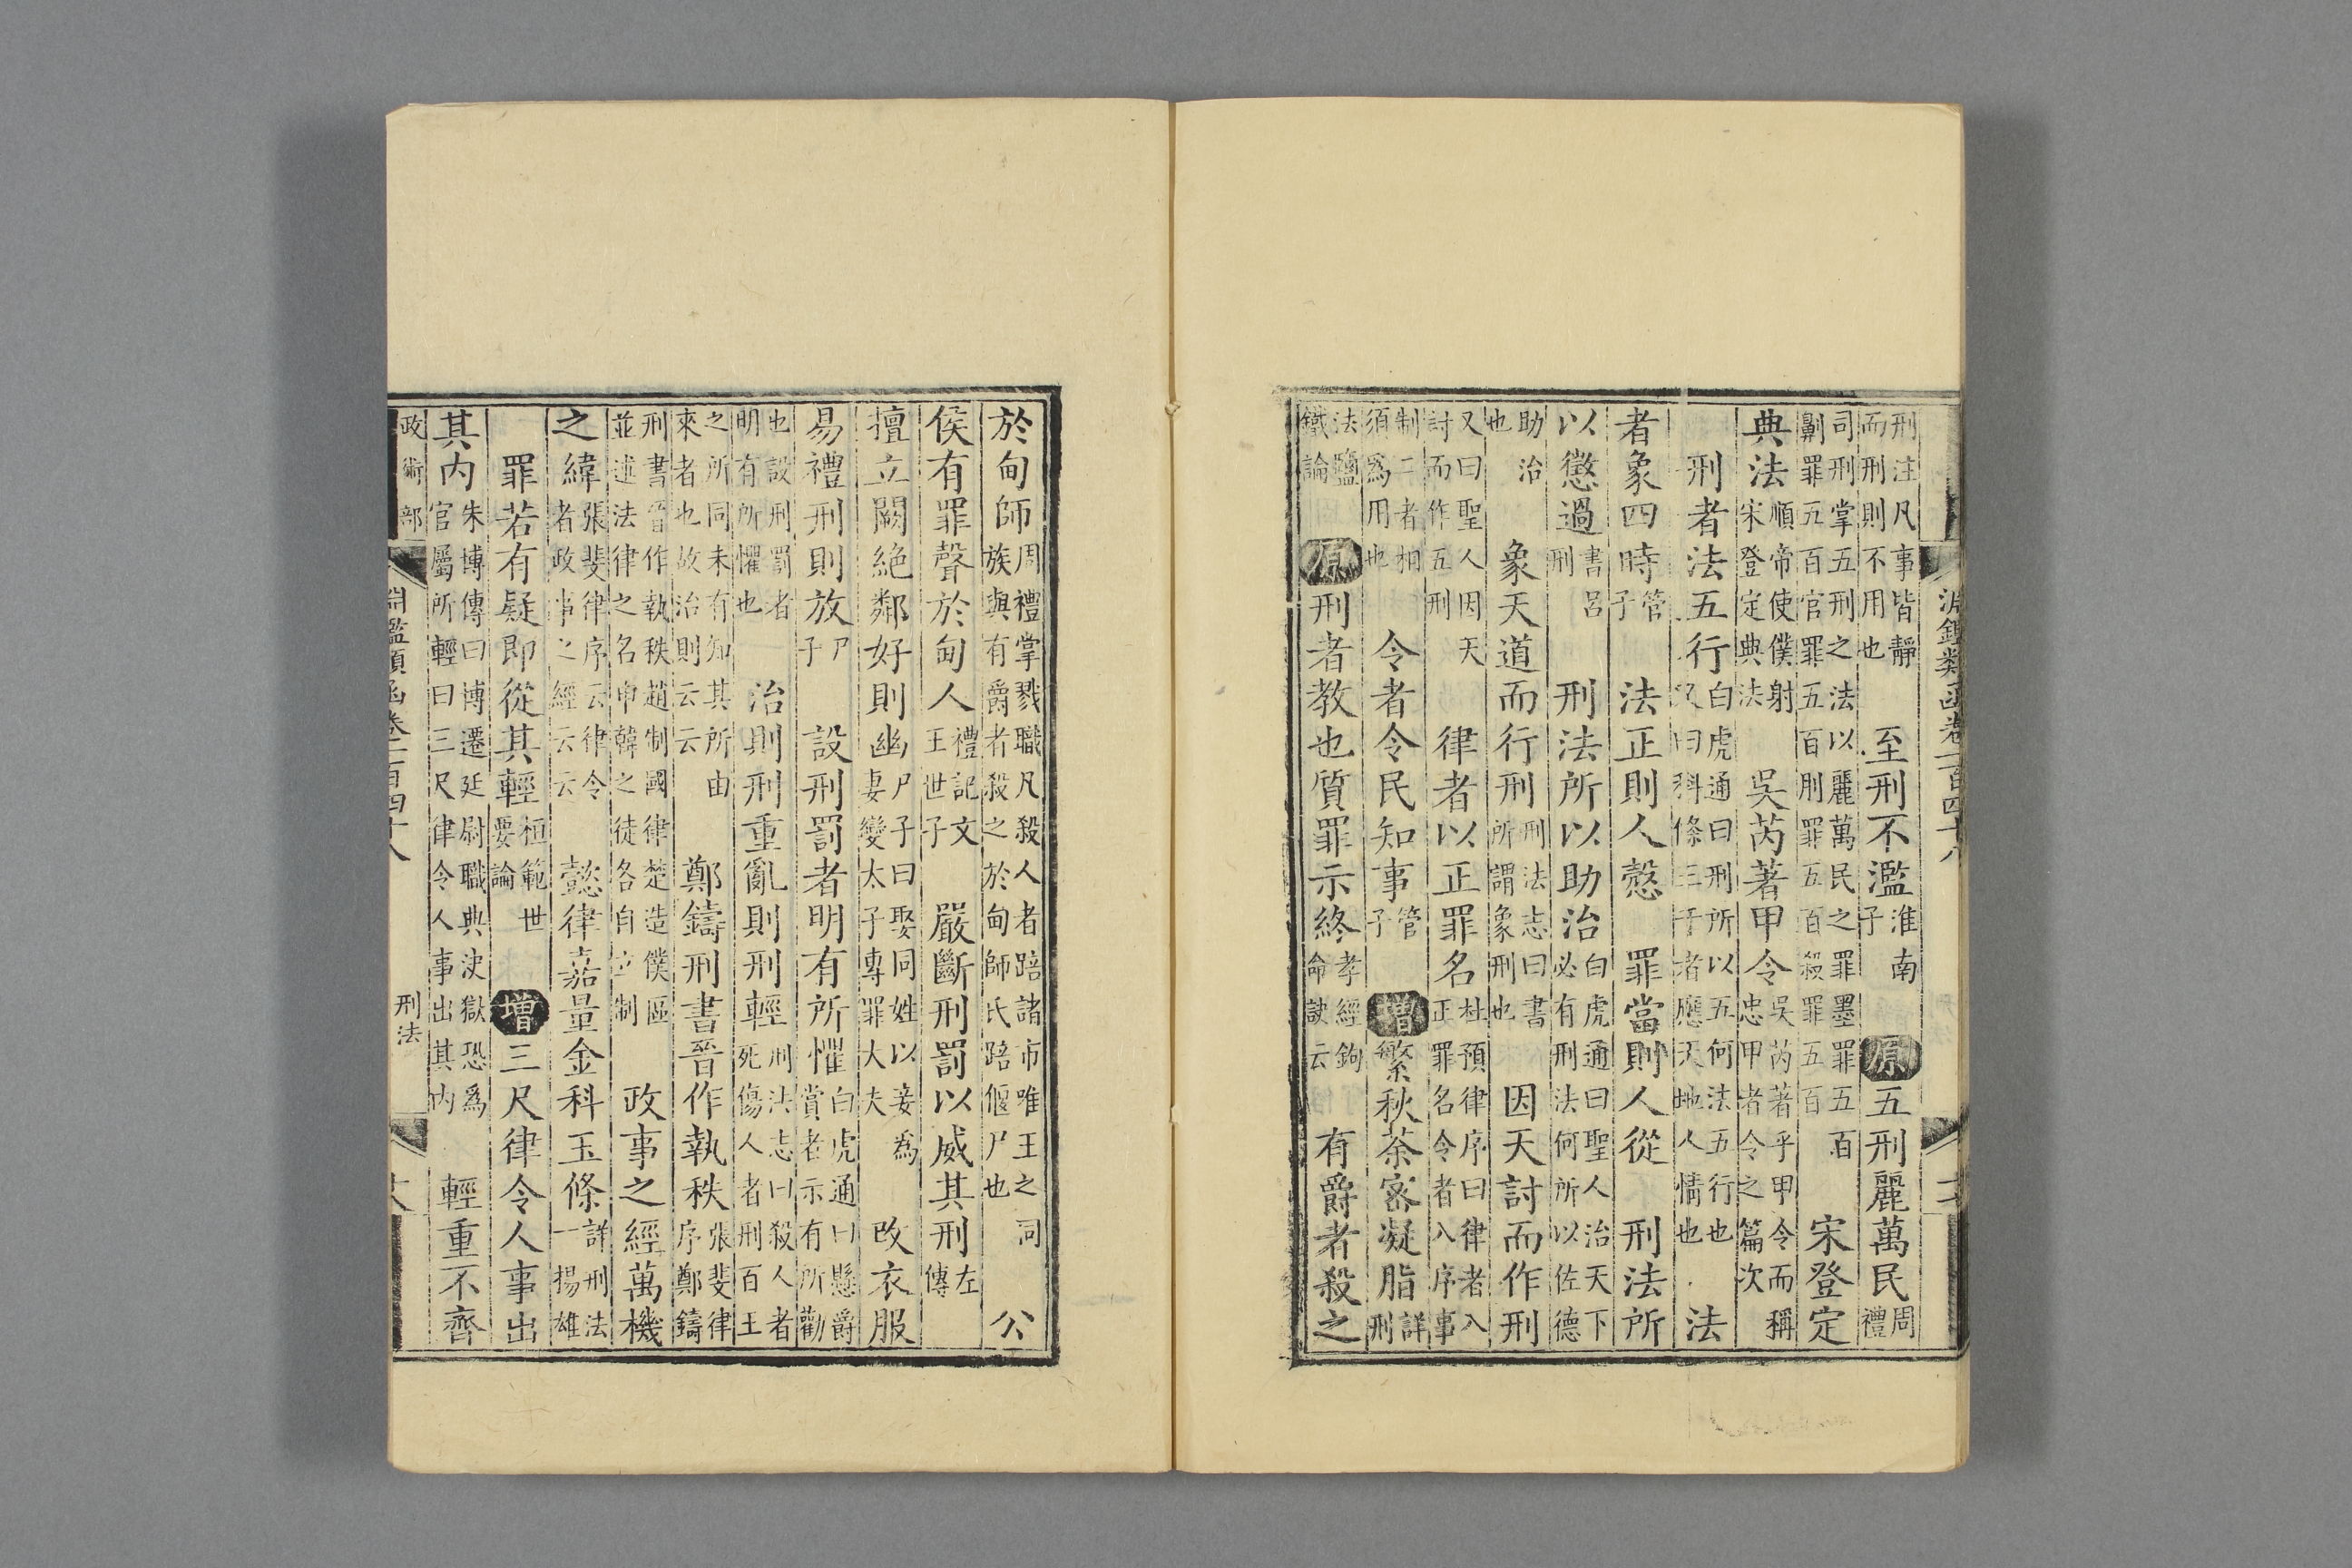 淵鑑類函卷一百四十八
刑注凡事皆靜而刑則不用也 至刑不濫淮南子 原五刑麗萬民周禮
司刑掌五刑之法以麗萬民之罪墨罪五百劓罪五百宮罪五百刖罪五百殺罪五百 宋登定
典法順帝使僕射宋登定典法 吳芮著甲令吳芮著乎甲令而稱忠甲者令之篇次
刑者法五行白虎通曰刑所以五何法五行也又曰科條三千者應天地人情也 法
者象四時管子 法正則人慤 罪當則人從 刑法所
以懲過書呂刑 刑法所以助治白虎通曰聖人治天下必有刑法何所以佐德
助治也 象天道而行刑刑法志曰書所謂象刑也 因天討而作刑
又曰聖人因天討而作五刑 律者以正罪名杜預律序曰律者入正罪名令者入序事
制二者相須爲用也 令者令民知事管子 增繁秋荼密凝脂詳刑
法鹽鐵論 原刑者教也質罪示終孝經鉤命訣云 有爵者殺之
於甸師周禮掌戮職凡殺人者踣諸市唯王之同族與有爵者殺之於甸師氏踣僵尸也 公
侯有罪聲於甸人禮記文王世子 嚴斷刑罰以威其刑左傳
擅立闕絕鄰好則幽尸子曰娶同姓以妾爲妻變太子專罪大夫 改衣服
易禮刑則放尸子 設刑罰者明有所懼白虎通曰懸爵賞者示有所勸
也設刑罰者明有所懼也 治則刑重亂則刑輕刑法志曰殺人者死傷人者刑百王
之所同未有知其所由來者也故治則云云 鄭鑄刑書晉作執秩張斐律序鄭鑄
刑書晉作執秩趙制國律楚造僕區並述法律之名申韓之徒各自立制 政事之經萬機
之緯張斐律序云律令者政事之經云云 懿律嘉量金科玉條詳刑法一揚雄
罪若有疑即從其輕桓範世要論 增三尺律令人事出
其內朱博傳曰博遷廷尉職典決獄恐爲官屬所輕曰三尺律令人事出其內 輕重不齊
政術部 淵鑑類函卷一百四十八 刑法 十八